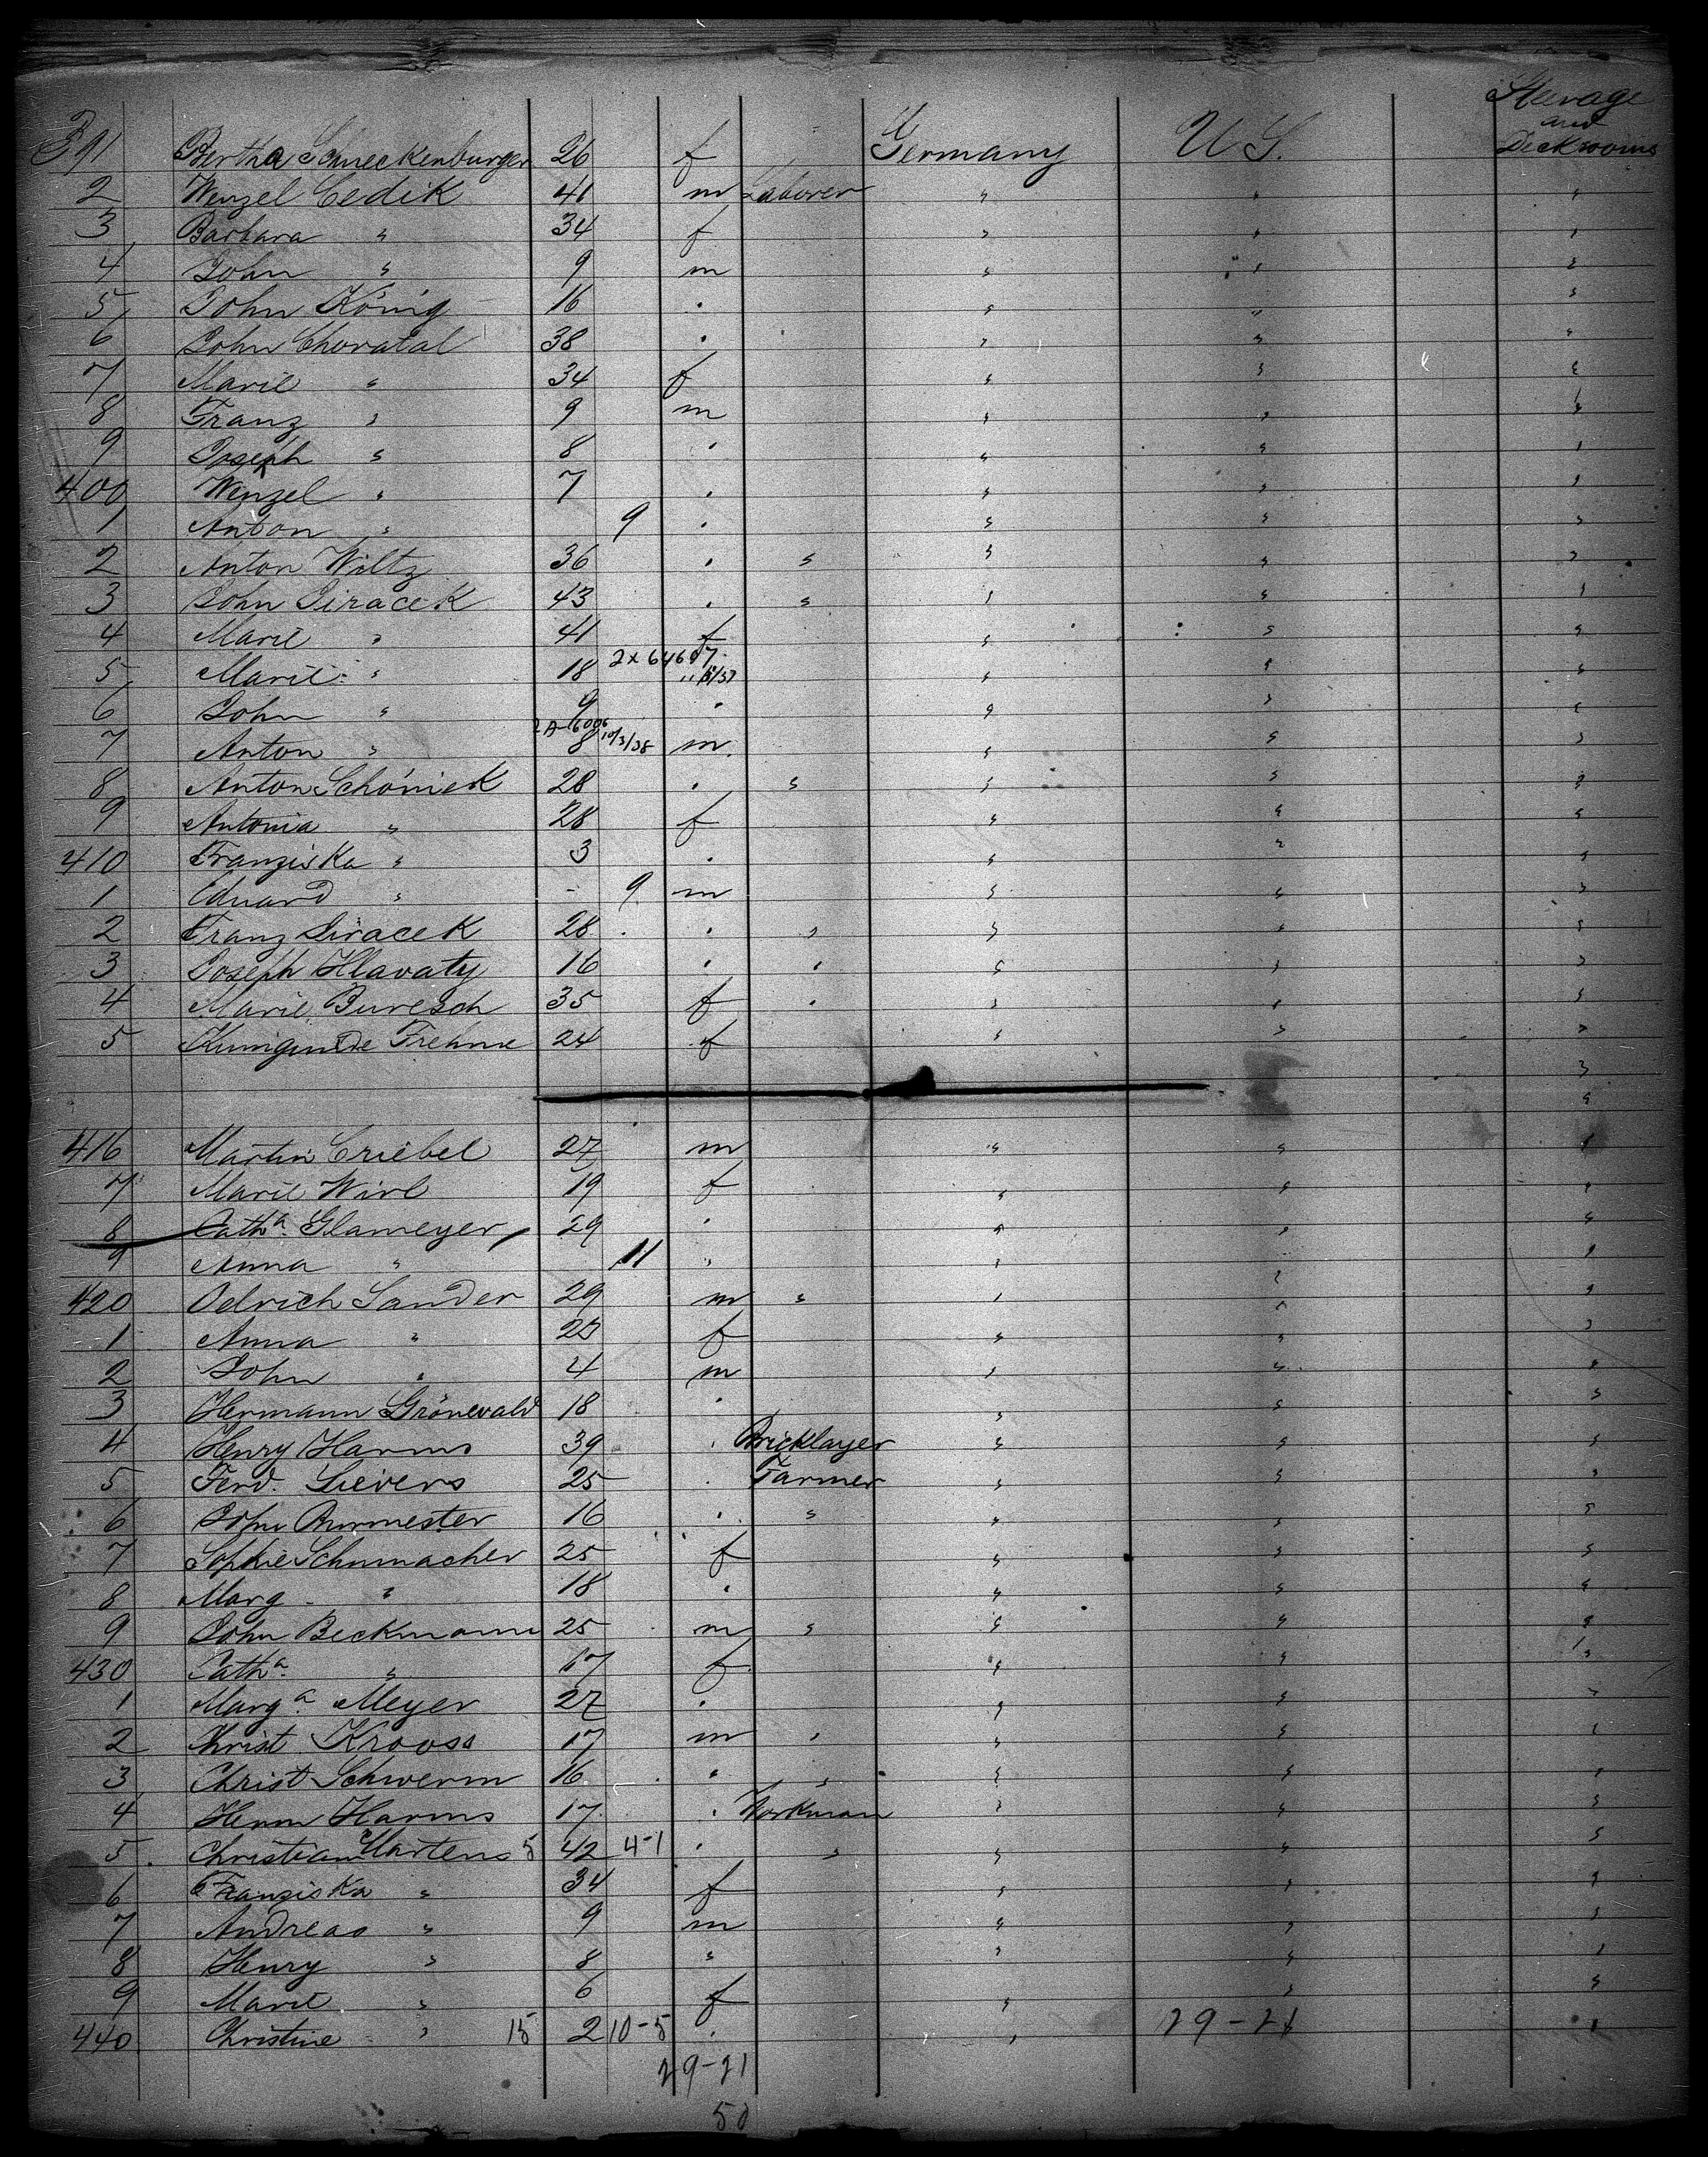 Steerage
and
391 Bertha Schneckenburger 26 f Germany U S. Deckrooms
2 Wenzel Cedik 41 m Laborer " " "
3 Barbara " 34 f " " "
4 John " 9 m " " "
5 John König 16 . " " "
6 John Choratal 38 . " " "
7 Marie " 34 f " " "
8 Franz " 9 m " " "
9 Joseph " 8 . " " "
400 Wenzel " 7 . " " "
1 Anton " 9 . " " "
2 Anton Wiltz 36 . " " " "
3 John Siracek 43 . " " " "
4 Marie " 41 f " " "
2x64697
5 Marie " 18 " " " "
6 John " 9 . " " "
2A-6006 10/3/38
7 Anton " 8 m " " "
8 Anton Schöniek 28 . " " " "
9 Antonia " 28 f " " "
410 Franziska " 3 . " " "
1 Eduard " - 9 m " " "
2 Franz Siracek 28 . " " " "
3 Joseph Hlavaty 16 . " " " "
4 Marie Buresch 35 f " " " "
5 Kunigunde Frehne 24 f " " "
416 Martin Criebel 27 m " " "
7 Marie Wirl 19 f " " "
8 Cath.a Glameyer 29 . " " "
9 Anna " 11 " " " "
420 Odrich Sander 29 m " " " "
1 Anna " 25 f " " "
2 John " 4 m " " "
3 Hermann Grönevald 18 . " " "
4 Henry Harms 39 . Bricklayer " " "
5 Ferd. Sievers 25 . Farmer " " "
6 John Burmester 16 . " " " "
7 Sophie Schumacher 25 f " " "
8 Marg " 18 . " " "
9 John Beckmann 25 m " " " "
430 Cath.a " 17 f " " "
1 Marg.a Meyer 27 . " " "
2 Christ Krooss 17 m " " " "
3 Christ Schwerm 16 . " " " "
4 Herm Harms 17 . Workman " " "
5 Christian Martens 5 42 4-1 . " " " "
6 Franziska " 34 f " " "
7 Andreas " 9 m " " "
8 Henry " 8 " " " "
9 Marie " 6 f " " "
440 Christine " 15 2 10-5 . " 29-21 "
29-21
50